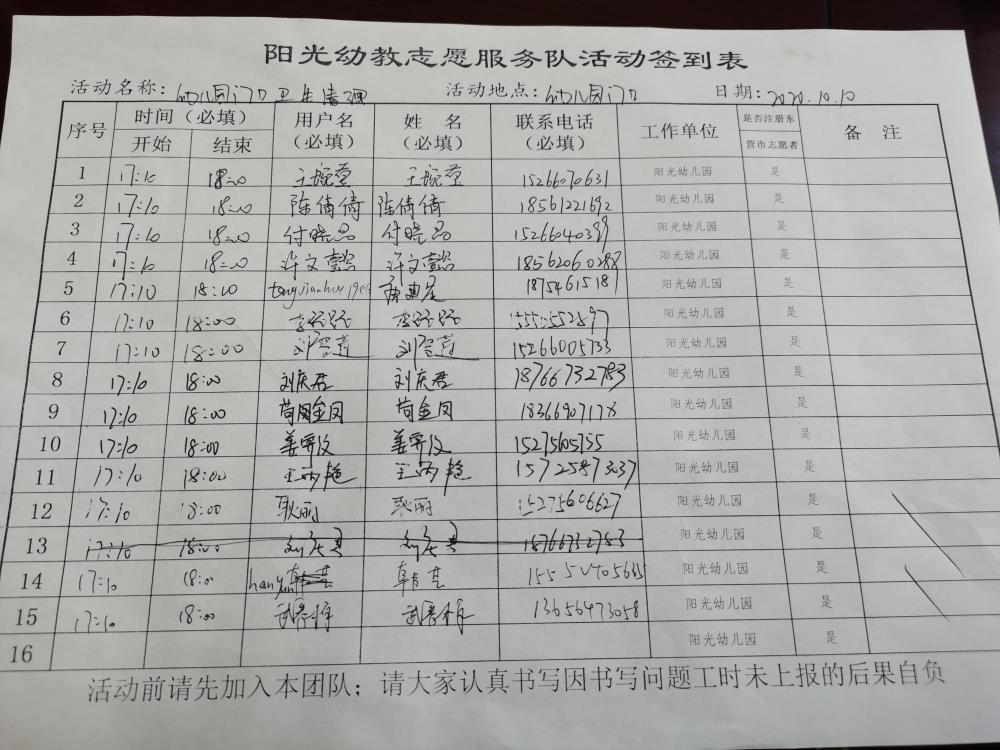 阳光幼教志愿服务队活动签到表
活动名称：幼儿园门口卫生清理 活动地点：幼儿园门口 日期：2020.10.10
序号 时间（必填） 用户名（必填） 姓 名（必填） 联系电话（必填） 工作单位 是否注册东营市志愿者 备 注
开始 结束
1 17:10 18:00 王婉莹 王婉莹 15266070631 阳光幼儿园 是
2 17:10 18:00 陈倩倩 陈倩倩 18561221692 阳光幼儿园 是
3 17:10 18:00 付晓 付晓 15266040399 阳光幼儿园 是
4 17:10 18:00 许文 许文 18562060288 阳光幼儿园 是
5 17:10 18:00 18754615181 阳光幼儿园 是
6 17:10 18:00 李 李 阳光幼儿园 是
7 17:10 18:00 刘雪莲 刘雪莲 15266005733 阳光幼儿园 是
8 17:10 18:00 刘庆君 刘庆君 18766732783 阳光幼儿园 是
9 17:10 18:00 苟金凤 苟金凤 18366907178 阳光幼儿园 是
10 17:10 18:00 姜 姜 15275605755 阳光幼儿园 是
11 17:10 18:00 王丙艳 王丙艳 15725873037 阳光幼儿园 是
12 17:10 18:00 耿丽 耿丽 15275606627 阳光幼儿园 是
13 17:10 18:00 18766732783 阳光幼儿园 是
14 17:10 18:00 韩 阳光幼儿园 是
15 17:10 18:00 武 武 13656473058 阳光幼儿园 是
16 阳光幼儿园 是
活动前请先加入本团队；请大家认真书写因书写问题工时未上报的后果自负